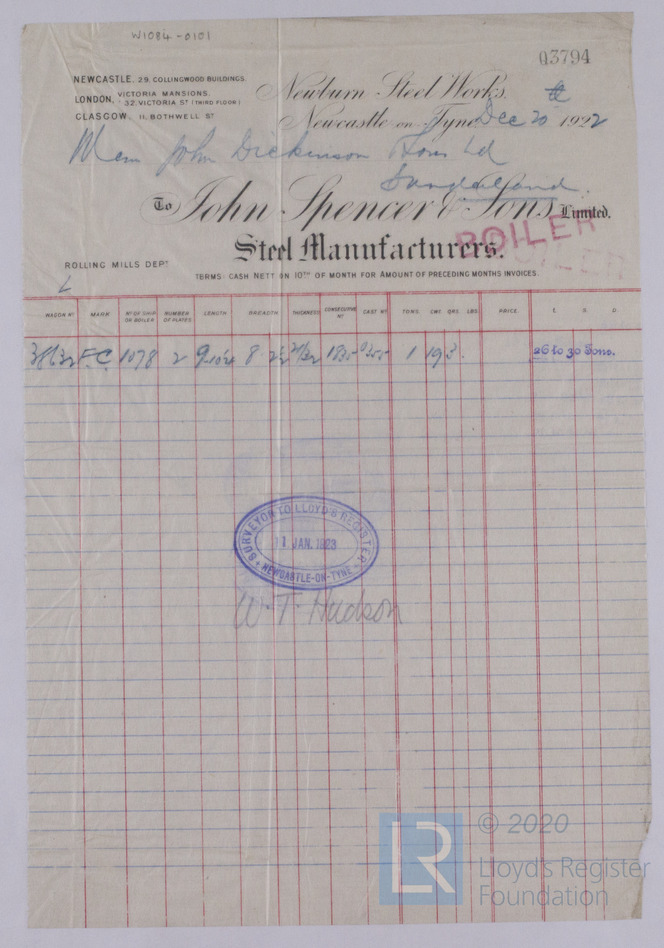 W1084-0101
03794
NEWCASTLE. 29, COLLINGWOOD BUILDINGS.
LONDON. VICTORIA MANSIONS. 32, VICTORIA ST (THIRD FLOOR)
GLASGOW. 11, BOTHWELL ST
Newburn Steel Works,
Newcastle on Tyne Dec 20 1922
John Dickinson Sons Ld
Sunderland.
To John Spencer & Sons Limited.
BOILER
BOILER
Steel Manufacturers.
ROLLING MILLS DEPT
TERMS: CASH NETT ON 10TH OF MONTH FOR AMOUNT OF PRECEDING MONTHS INVOICES.
WAGON No MARK No OF SHIP OR BOILER NUMBER OF PLATES LENGTH BREADTH THICKNESS CONSECUTIVE No CAST No TONS. CWT. QRS. LBS. PRICE. £ S. D.
F.C. 1078 2 1 19 3 26 to 30 Tons.
SURVEYOR TO LLOYD'S REGISTER
11 JAN. 1923
NEWCASTLE-ON-TYNE
W. T. Hudson
LR
© 2020
Lloyd's Register
Foundation